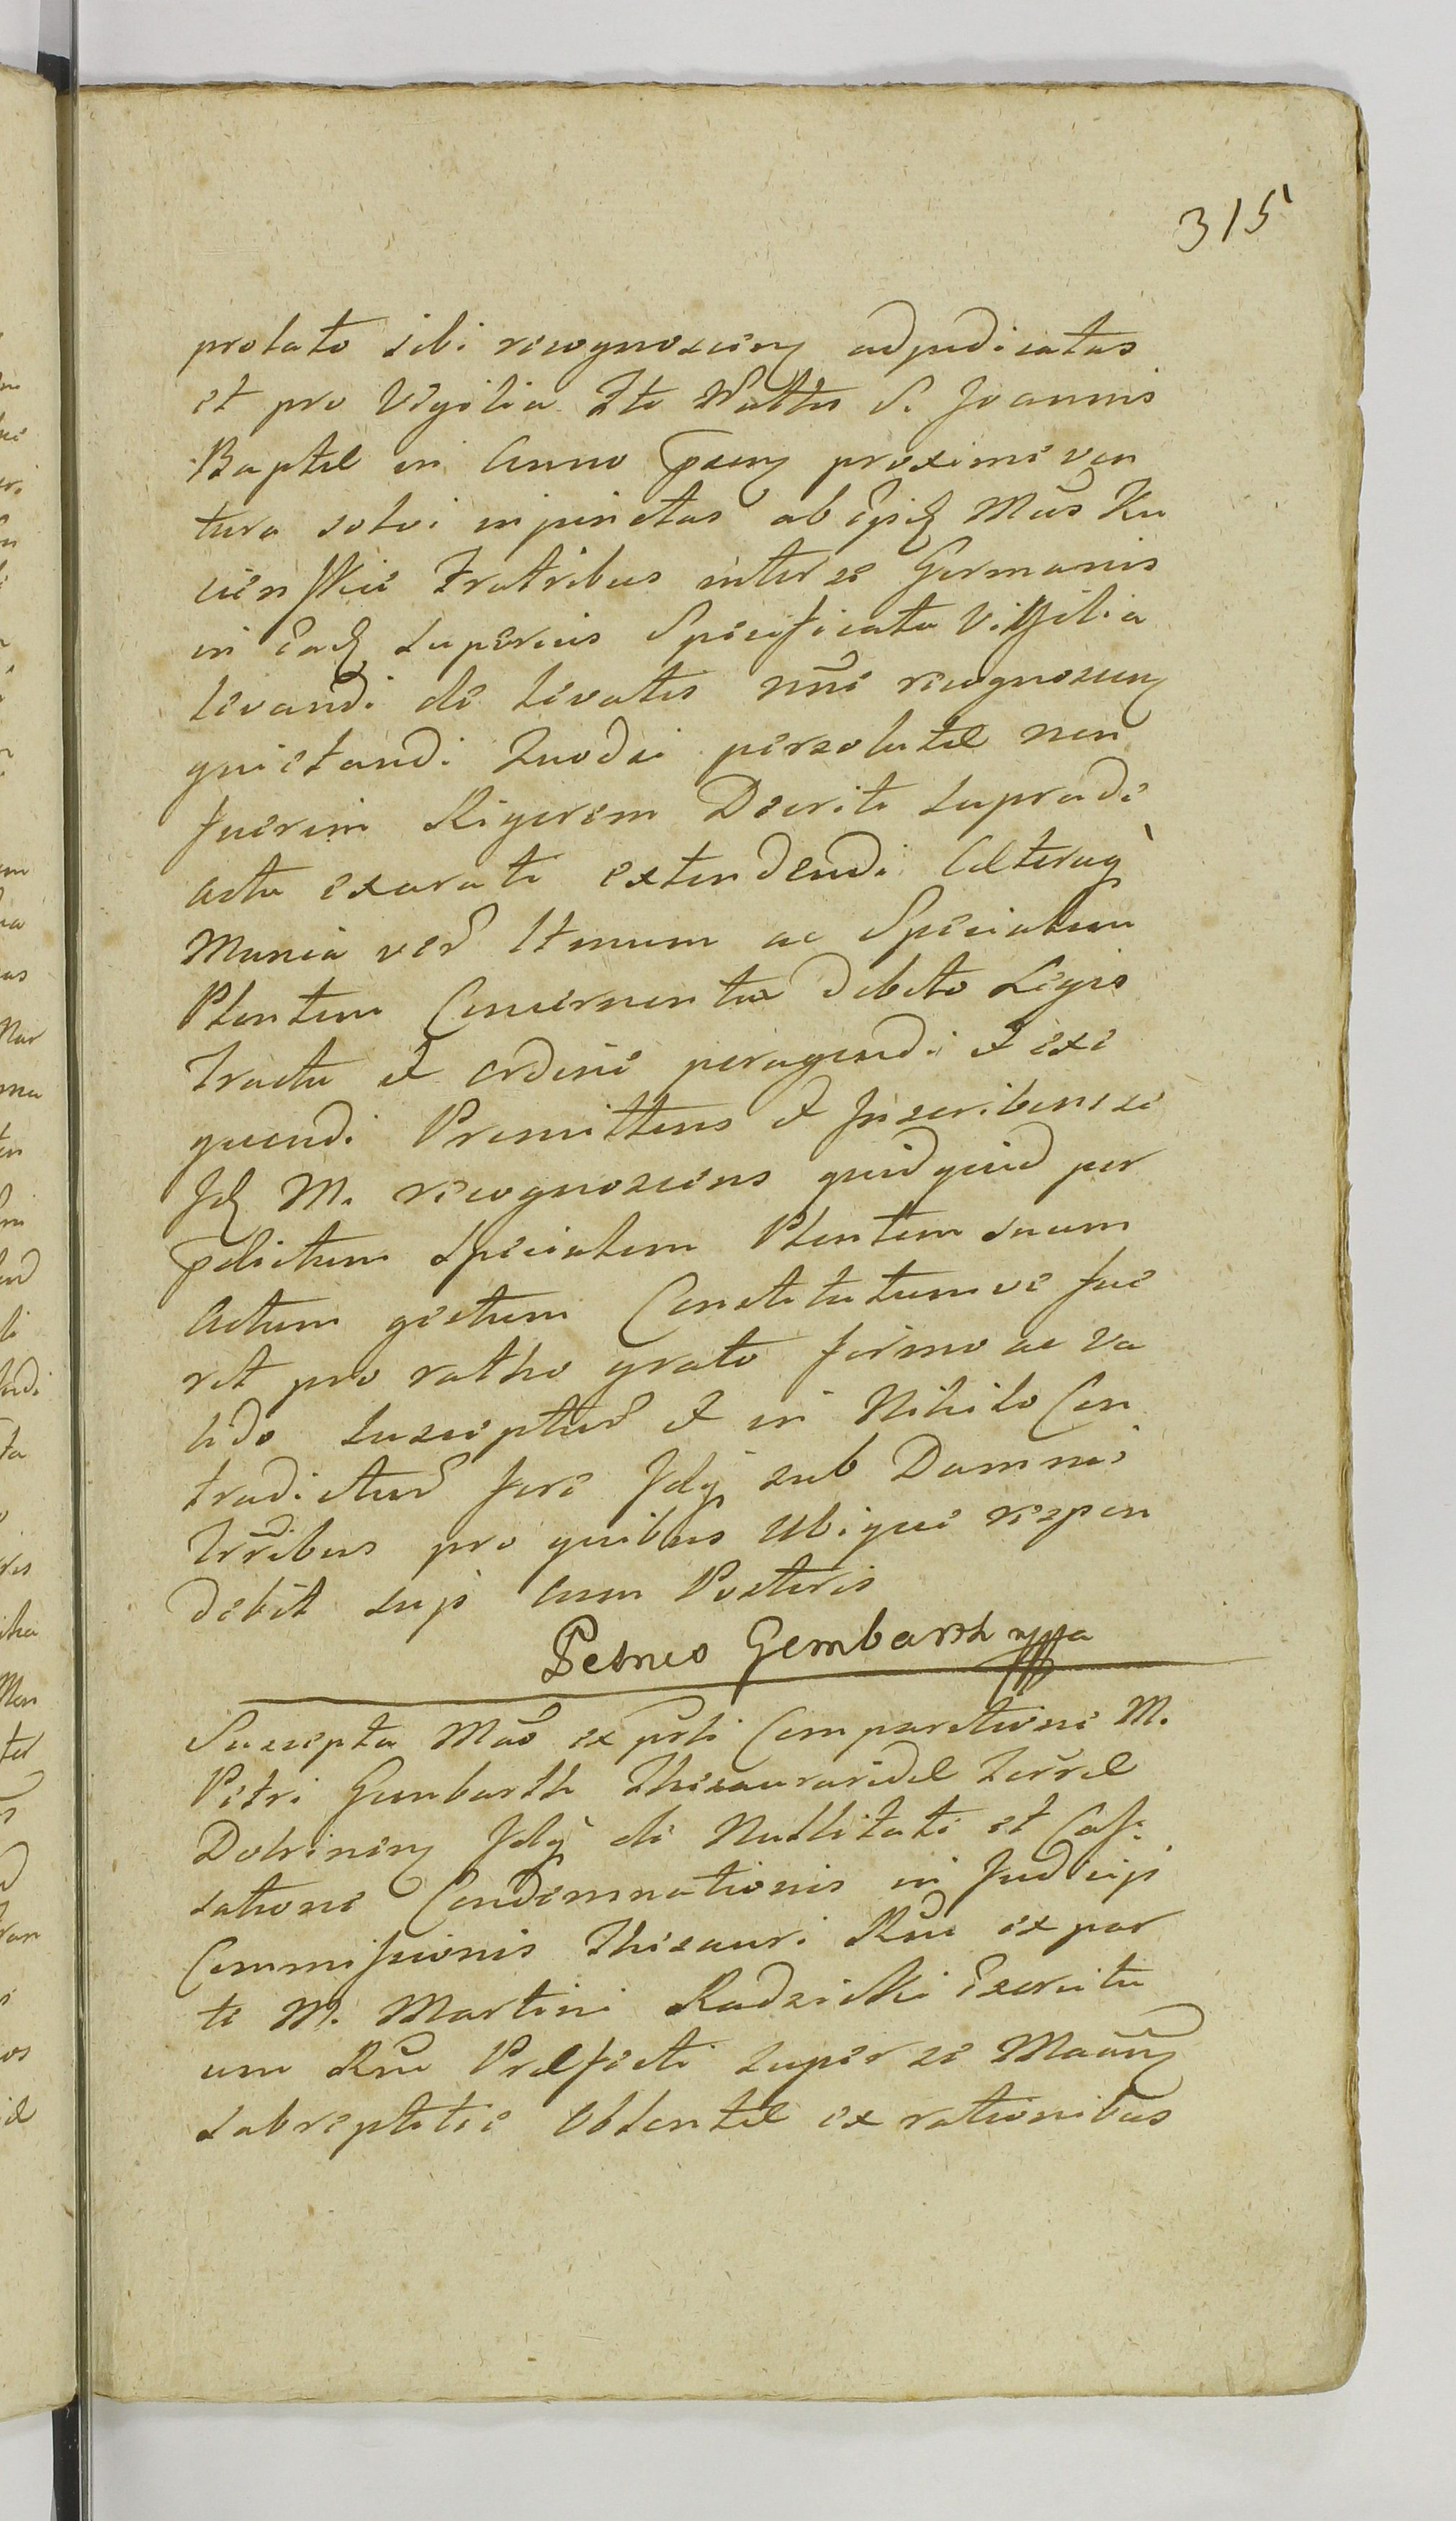 315
prolato sibi recognoscen adjudicatas
et pro Vigilia Fti Nattis S. Joannis
Baptæ in Anno pxen proxime ven
tura solvi injunctas ab Epis Mcis Ku
cienskie Fratribus inter se Germanis
in Ead superius Specificata Vigilia
levandi de levatis nõe recognoscen
quietandi Quodsi persolutæ non
fuerint Rigorem Decreti supra de
actu exarati extendendi Alteraq
Munia ved Itmum ac Specialem
Plentem Concernentia debito Legis
Tractu et ordine peragendi et exe
quendi Promittens et Inscribens se
Id M. recognoscens quidquid per
pdictum specialem Plentem suum
Actum gestum Constitutumve fue
rit pro ratho grato firmo ac va
lido suscepturũ et in Nihilo Con
tradicturũ fore Idq sub Damnis
Trribus pro quibus Ubique respon
debit sup cum Posteris
Petrus Gembarth mppa
Suscepta Mão ex psli Comparitione M.
Petri Gembarth Thesauraridæ Terræ
Dobrinen Idq de Nullitate et Cas:
satione Condemnationis in Judicijs
Commissionis Thesauri Rni ex par
te M. Martini Radzicki Exercitu
um Rni Præfecti super se Mãnn
subreptitie Obtentæ ex rationibus